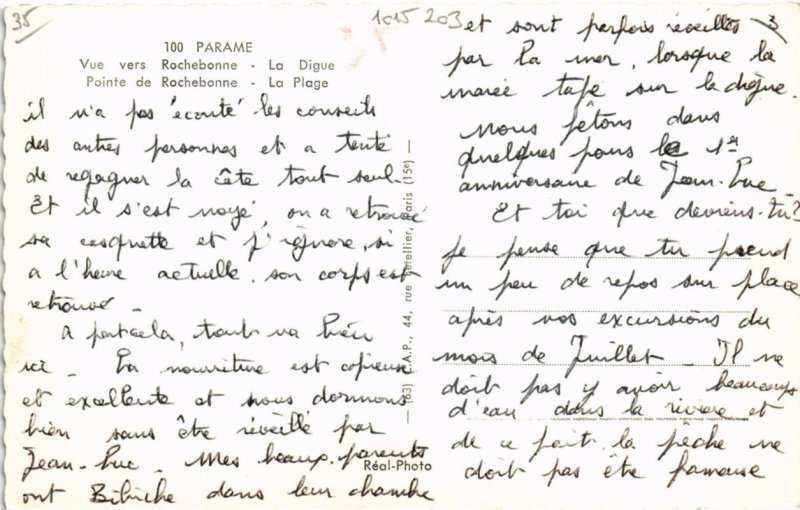 35
1015 203
3
100 PARAME
Vue vers Rochebonne - La Digue
Pointe de Rochebonne - La Plage
il n'a pas écouté les conseils
des autres personnes et a tenté
de regagner la côte tout seul.
Et il s'est noyé, on a retrouvé
sa casquette et j'ignore, si
a l'heure actuelle, son corps est
retrouvé -
A part cela, tout va bien
ici - La nourriture est copieuse
et excellente et nous dormons
bien sans être réveillé par
Jean-Luc - Mes beaux-parents
ont Bibiche dans leur chambre
— (63) A.P., 44, rue Letellier, Paris (15e) —
Réal-Photo
et sont parfois réveillés
par la mer, lorsque la
marée tape sur la digue.
Nous fêtons dans
quelques jours le 1er
anniversaire de Jean-Luc -
Et toi que deviens-tu?
Je pense que tu prend
un peu de repos sur place
après vos excursions du
mois de Juillet - Il ne
doit pas y avoir beaucoup
d'eau dans la rivière et
de ce fait la pêche ne
doit pas être fameuse